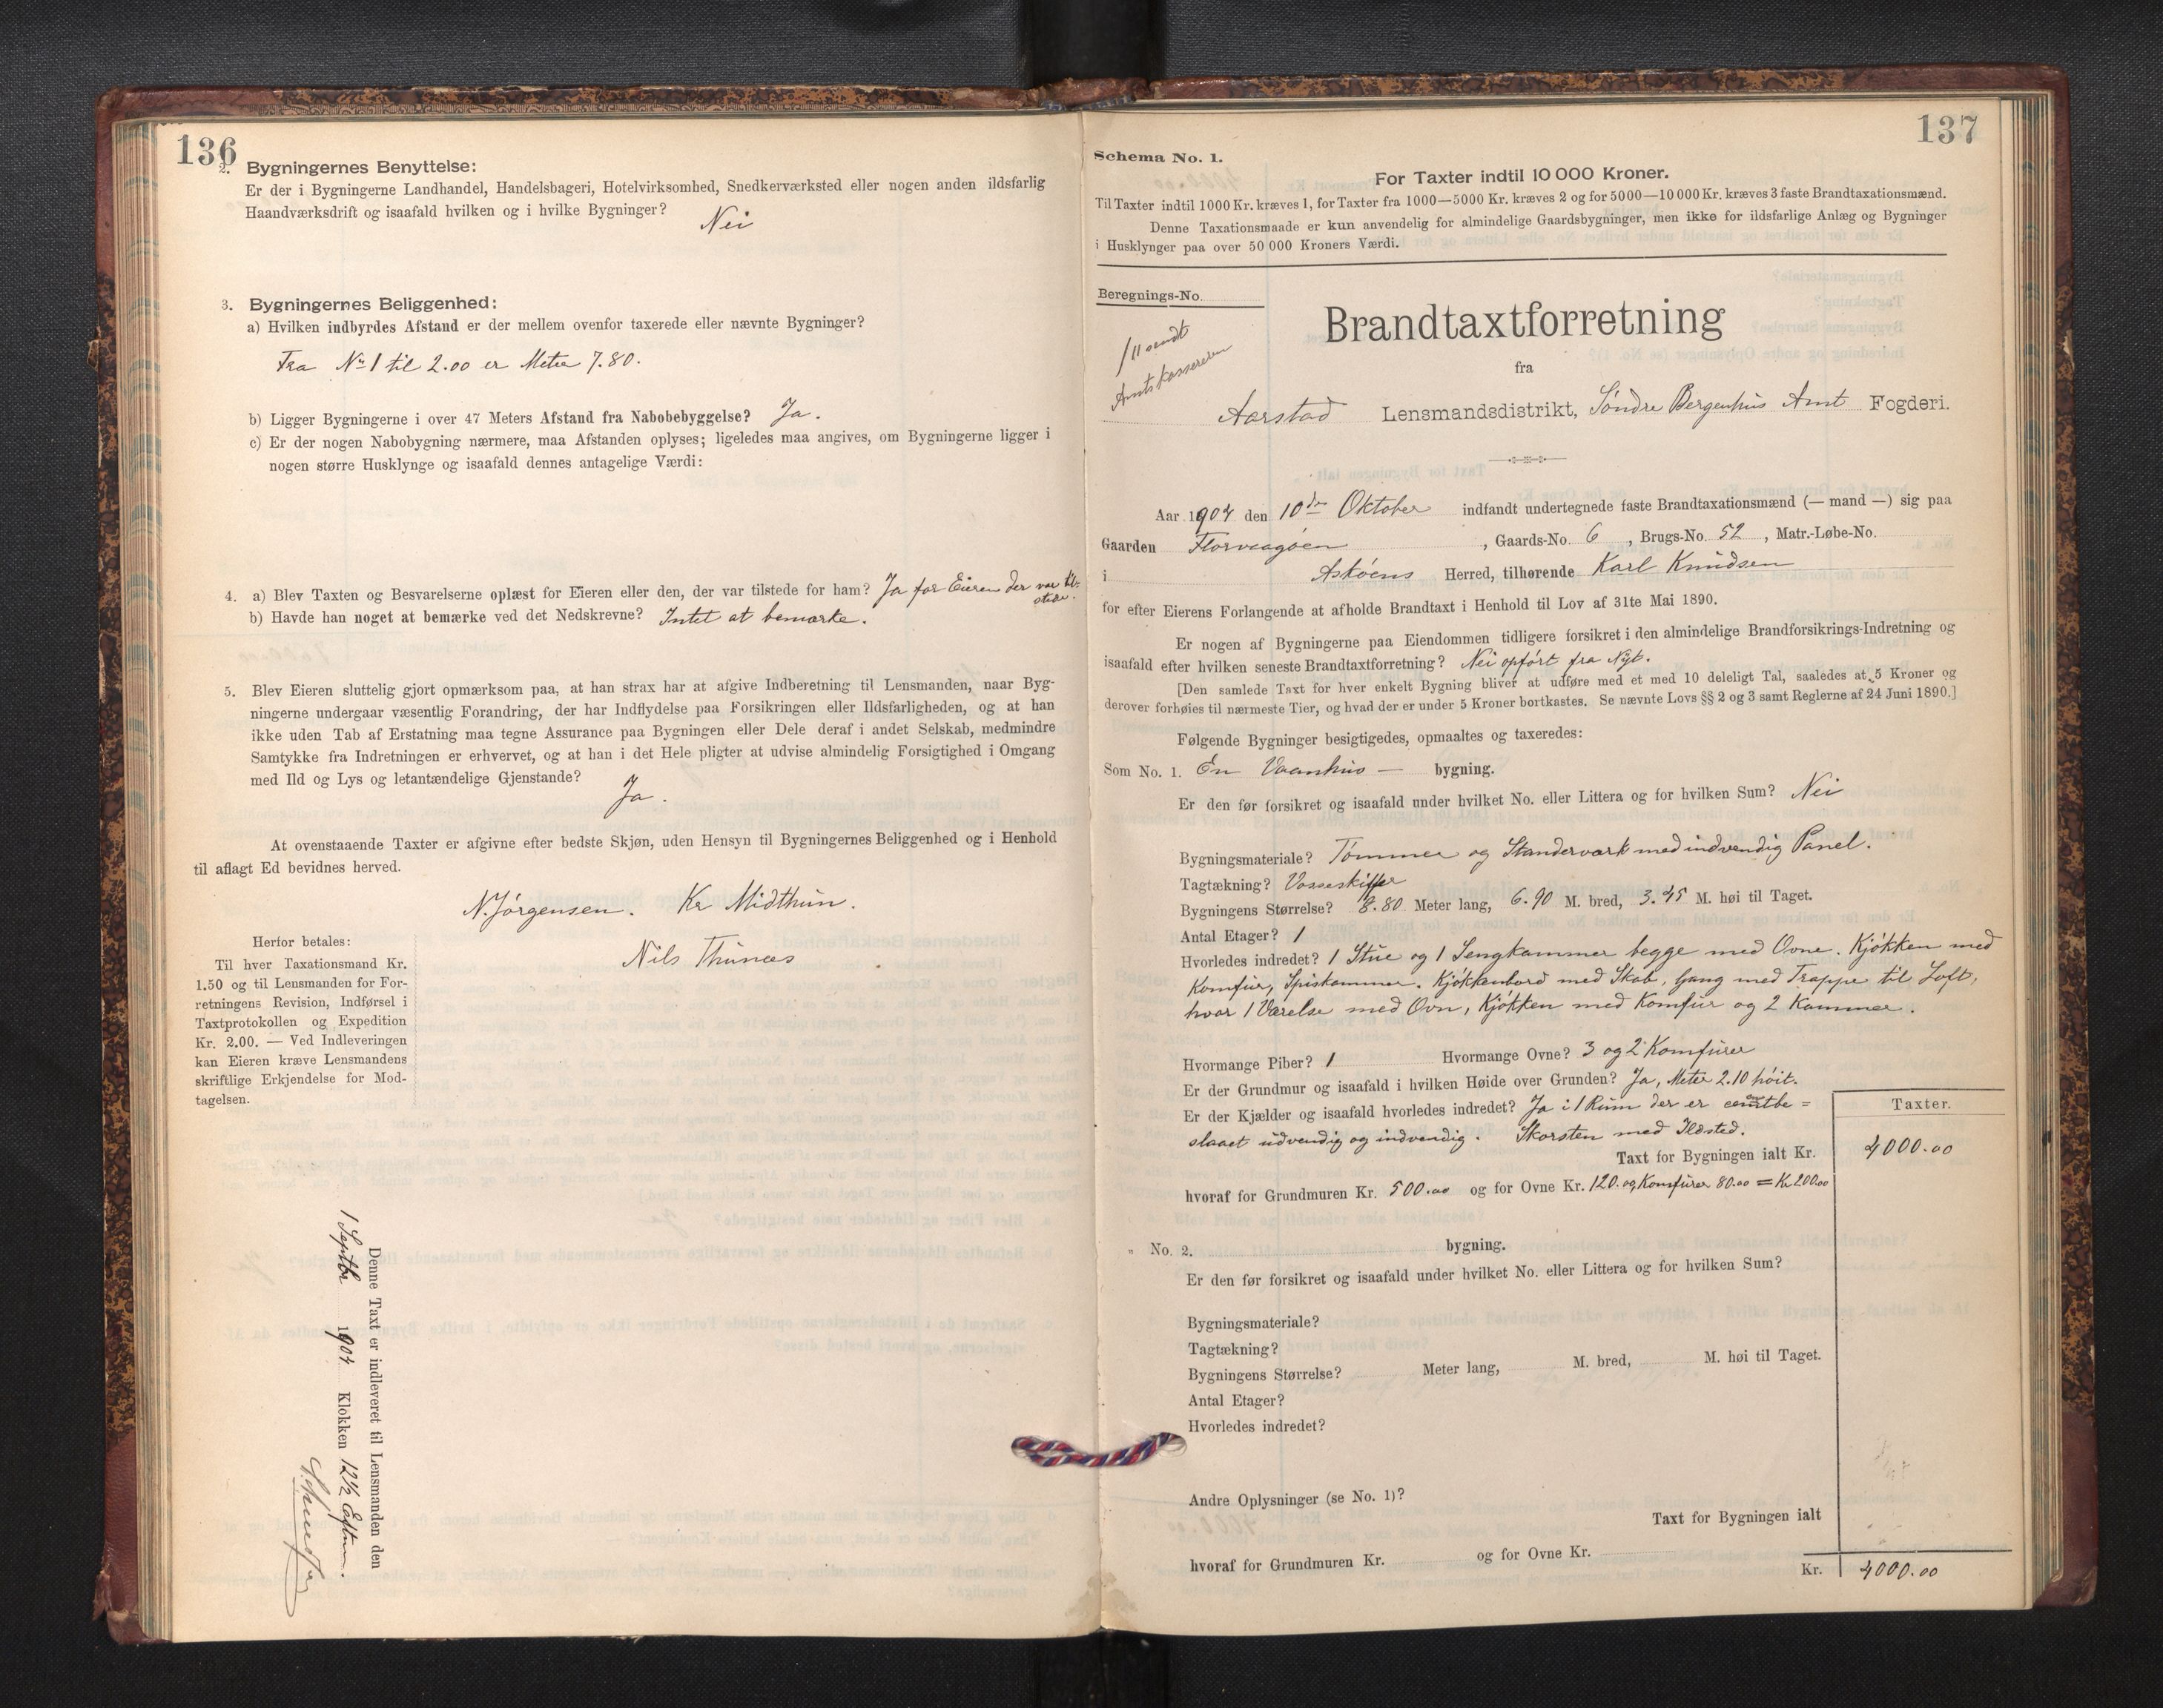 136
2. Bygningernes Benyttelse:
Er der i Bygningerne Landhandel, Handelsbageri, Hotelvirksomhed, Snedkerværksted eller nogen anden ildsfarlig
Haandværksdrift og isaafald hvilken og i hvilke Bygninger?
Nei
3. Bygningernes Beliggenhed:
a) Hvilken indbyrdes Afstand er der mellem ovenfor taxerede eller nævnte Bygninger?
Fra No 1 til 2.00 er Meter 7.80.
b) Ligger Bygningerne i over 47 Meters Afstand fra Nabobebyggelse? Ja.
c) Er der nogen Nabobygning nærmere, maa Afstanden oplyses; ligeledes maa angives, om Bygningerne ligger i
nogen større Husklynge og isaafald dennes antagelige Værdi:
4. a) Blev Taxten og Besvarelserne oplæst for Eieren eller den, der var tilstede for ham? Ja for Eieren der var til-
stede.
b) Havde han noget at bemærke ved det Nedskrevne? Intet at bemærke.
5. Blev Eieren sluttelig gjort opmærksom paa, at han strax har at afgive Indberetning til Lensmanden, naar Byg-
ningerne undergaar væsentlig Forandring, der har Indflydelse paa Forsikringen eller Ildsfarligheden, og at han
ikke uden Tab af Erstatning maa tegne Assurance paa Bygningen eller Dele deraf i andet Selskab, medmindre
Samtykke fra Indretningen er erhvervet, og at han i det Hele pligter at udvise almindelig Forsigtighed i Omgang
med Ild og Lys og letantændelige Gjenstande?
Ja.
At ovenstaaende Taxter er afgivne efter bedste Skjøn, uden Hensyn til Bygningernes Beliggenhed og i Henhold
til aflagt Ed bevidnes herved.
N. Jörgensen. Kr Midthun.
Nils Thunæs
Herfor betales:
Til hver Taxationsmand Kr.
1.50 og til Lensmanden for For-
retningens Revision, Indførsel i
Taxtprotokollen og Expedition
Kr. 2.00. — Ved Indleveringen
kan Eieren kræve Lensmandens
skriftlige Erkjendelse for Mod-
tagelsen.
Denne Taxt er indleveret til Lensmanden den
1 Septbr 1904 Klokken 12½ Eftm.
137
Schema No. 1.
For Taxter indtil 10 000 Kroner.
Til Taxter indtil 1000 Kr. kræves 1, for Taxter fra 1000—5000 Kr. kræves 2 og for 5000—10 000 Kr. kræves 3 faste Brandtaxationsmænd.
Denne Taxationsmaade er kun anvendelig for almindelige Gaardsbygninger, men ikke for ildsfarlige Anlæg og Bygninger
i Husklynger paa over 50 000 Kroners Værdi.
Beregnings-No.
Amtskassereren
Brandtaxtforretning
fra
Aarstad Lensmandsdistrikt, Söndre Bergenhus Amt Fogderi.
Aar 1904 den 10de Oktober indfandt undertegnede faste Brandtaxationsmænd (— mand —) sig paa
Gaarden Florvaagöen, Gaards-No. 6, Brugs-No. 52, Matr.-Løbe-No.
i Asköens Herred, tilhørende Karl Knudsen
for efter Eierens Forlangende at afholde Brandtaxt i Henhold til Lov af 31te Mai 1890.
Er nogen af Bygningerne paa Eiendommen tidligere forsikret i den almindelige Brandforsikrings-Indretning og
isaafald efter hvilken seneste Brandtaxtforretning? Nei opfört fra Nyt.
[Den samlede Taxt for hver enkelt Bygning bliver at udføre med et med 10 deleligt Tal, saaledes at 5 Kroner og
derover forhøies til nærmeste Tier, og hvad der er under 5 Kroner bortkastes. Se nævnte Lovs §§ 2 og 3 samt Reglerne af 24 Juni 1890.]
Følgende Bygninger besigtigedes, opmaaltes og taxeredes:
Som No. 1. En Vaanhus — bygning.
Er den før forsikret og isaafald under hvilket No. eller Littera og for hvilken Sum? Nei
Bygningsmateriale? Tömmer og Standerværk med indvendig Panel.
Tagtækning? Vosseskiffer
Bygningens Størrelse? 8.80 Meter lang, 6.90 M. bred, 3.45 M. høi til Taget.
Antal Etager? 1
Hvorledes indredet? 1 Stue og 1 Sengkammer begge med Ovne. Kjökken med
Komfur, Spiskammer. Kjökkenbord med Skab, Gang med Trappe til Loft,
hvor 1 Værelse med Ovn, Kjökken med Komfur og 2 Kammer.
Hvormange Piber? 1 Hvormange Ovne? 3 og 2 Komfürer
Er der Grundmur og isaafald i hvilken Høide over Grunden? Ja, Meter 2.10 höit.
Er der Kjælder og isaafald hvorledes indredet? Ja i 1 Rum der er be=
slaaet udvendig og indvendig. Skorsten med Ildsted.
Taxter.
Taxt for Bygningen ialt Kr. 4000.00
hvoraf for Grundmuren Kr. 500.00 og for Ovne Kr. 120. og Komfürer 80.00 = Kr 200.00
" No. 2. bygning.
Er den før forsikret og isaafald under hvilket No. eller Littera og for hvilken Sum?
Bygningsmateriale?
Tagtækning?
Bygningens Størrelse? Meter lang, M. bred, M. høi til Taget.
Antal Etager?
Hvorledes indredet?
Andre Oplysninger (se No. 1)?
Taxt for Bygningen ialt
hvoraf for Grundmuren Kr. og for Ovne Kr.
Kr. 4000.00